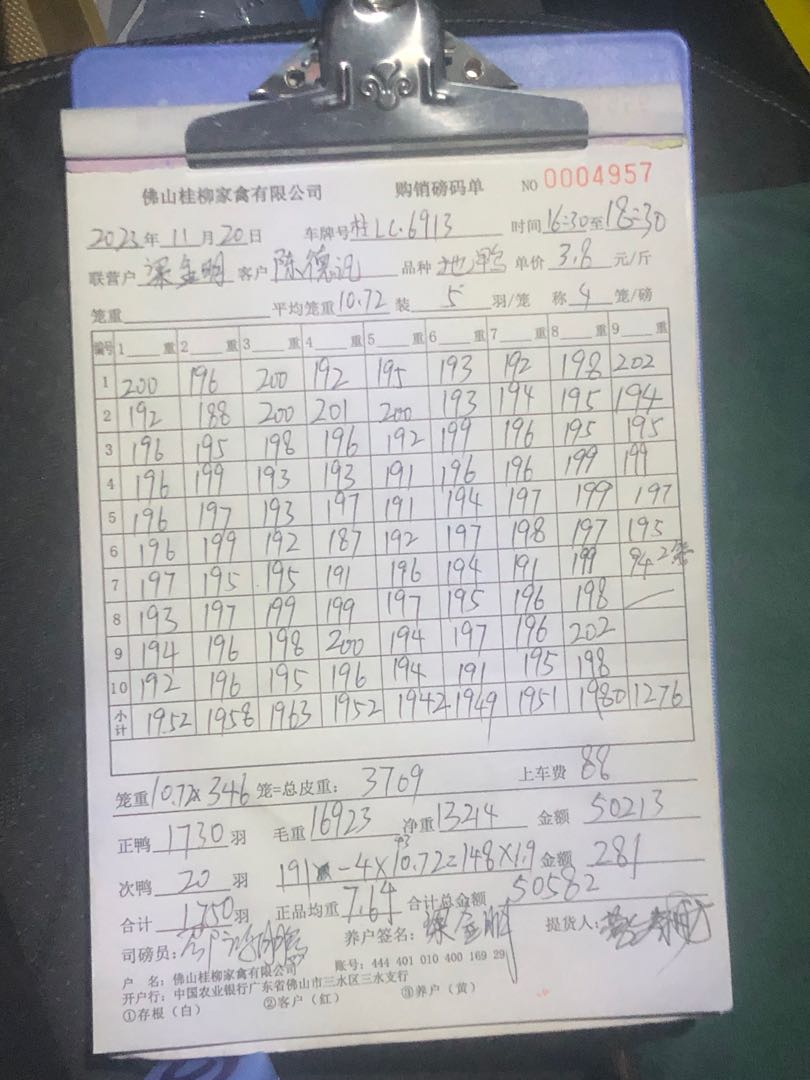 佛山桂柳家禽有限公司 购销磅码单 NO 0004957
2023年 11月20日 车牌号桂LC.6913 时间16:30至18:30
联营户 梁金明 客户 陈德 品种 土鸭 单价 3.8 元/斤
笼重 平均笼重10.72 装 5 羽/笼 称 4 笼/磅
编号 1 重 2 重 3 重 4 重 5 重 6 重 7 重 8 重 9 重
1 200 196 200 192 195 193 192 198 202
2 192 188 200 201 200 193 194 195 194
3 196 195 198 196 192 199 196 195 195
4 196 199 193 193 191 196 196 199 199
5 196 197 193 197 191 194 197 199 197
6 196 199 192 187 192 197 198 197 195
7 197 195 195 191 196 194 191 199 94 2笼
8 193 197 199 199 197 195 196 198
9 194 196 198 200 194 197 196 202
10 192 196 195 196 194 191 195 198
小计 1952 1958 1963 1952 1942 1949 1951 1980 1276
笼重10.72×346 笼=总皮重: 3709 上车费 88
正鸭 1730 羽 毛重16923 净重13214 金额 50213
次鸭 20 羽 191 -4×10.72=148×1.9 金额 281
合计 1750羽 正品均重7.64 合计总金额 50582
司磅员: 养户签名: 梁金明 提货人:
户 名: 佛山桂柳家禽有限公司 账号: 444 401 010 400 169 29
开户行: 中国农业银行广东省佛山市三水区三水支行
①存根(白) ②客户(红) ③养户(黄)